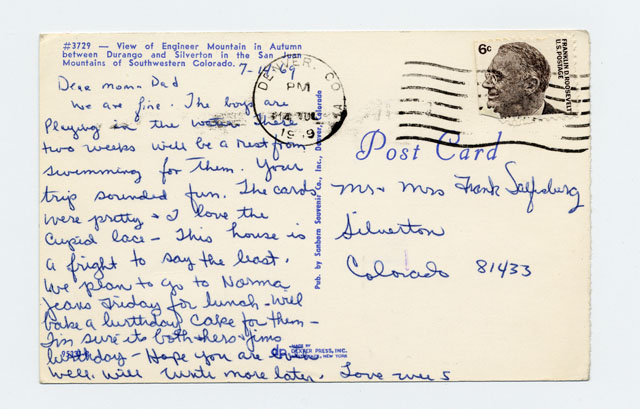 #3729 — View of Engineer Mountain in Autumn
between Durango and Silverton in the San Juan
Mountains of Southwestern Colorado.
7-14-69
Dear Mom & Dad
We are fine. The boys are
playing in the water. These
two weeks will be a rest from
swimming for them. Your
trip sounded fun. The cards
were pretty & I love the
Cupid lace - This house is
a fright to say the least.
We plan to go to Norma
Jeans Friday for lunch. Will
bake a birthday cake for them -
I'm sure its both hers & Jims
birthday - Hope you are
well. Will write more later. Love we 5
DENVER, CO
PM
14 JUL
1969
6c
U.S. POSTAGE
FRANKLIN D. ROOSEVELT
Post Card
Mr & Mrs Frank
Silverton
Colorado 81433
Pub. by Sanborn Souvenir Co., Inc., Denver, Colorado
MADE BY
DEXTER PRESS, INC.
NEW YORK